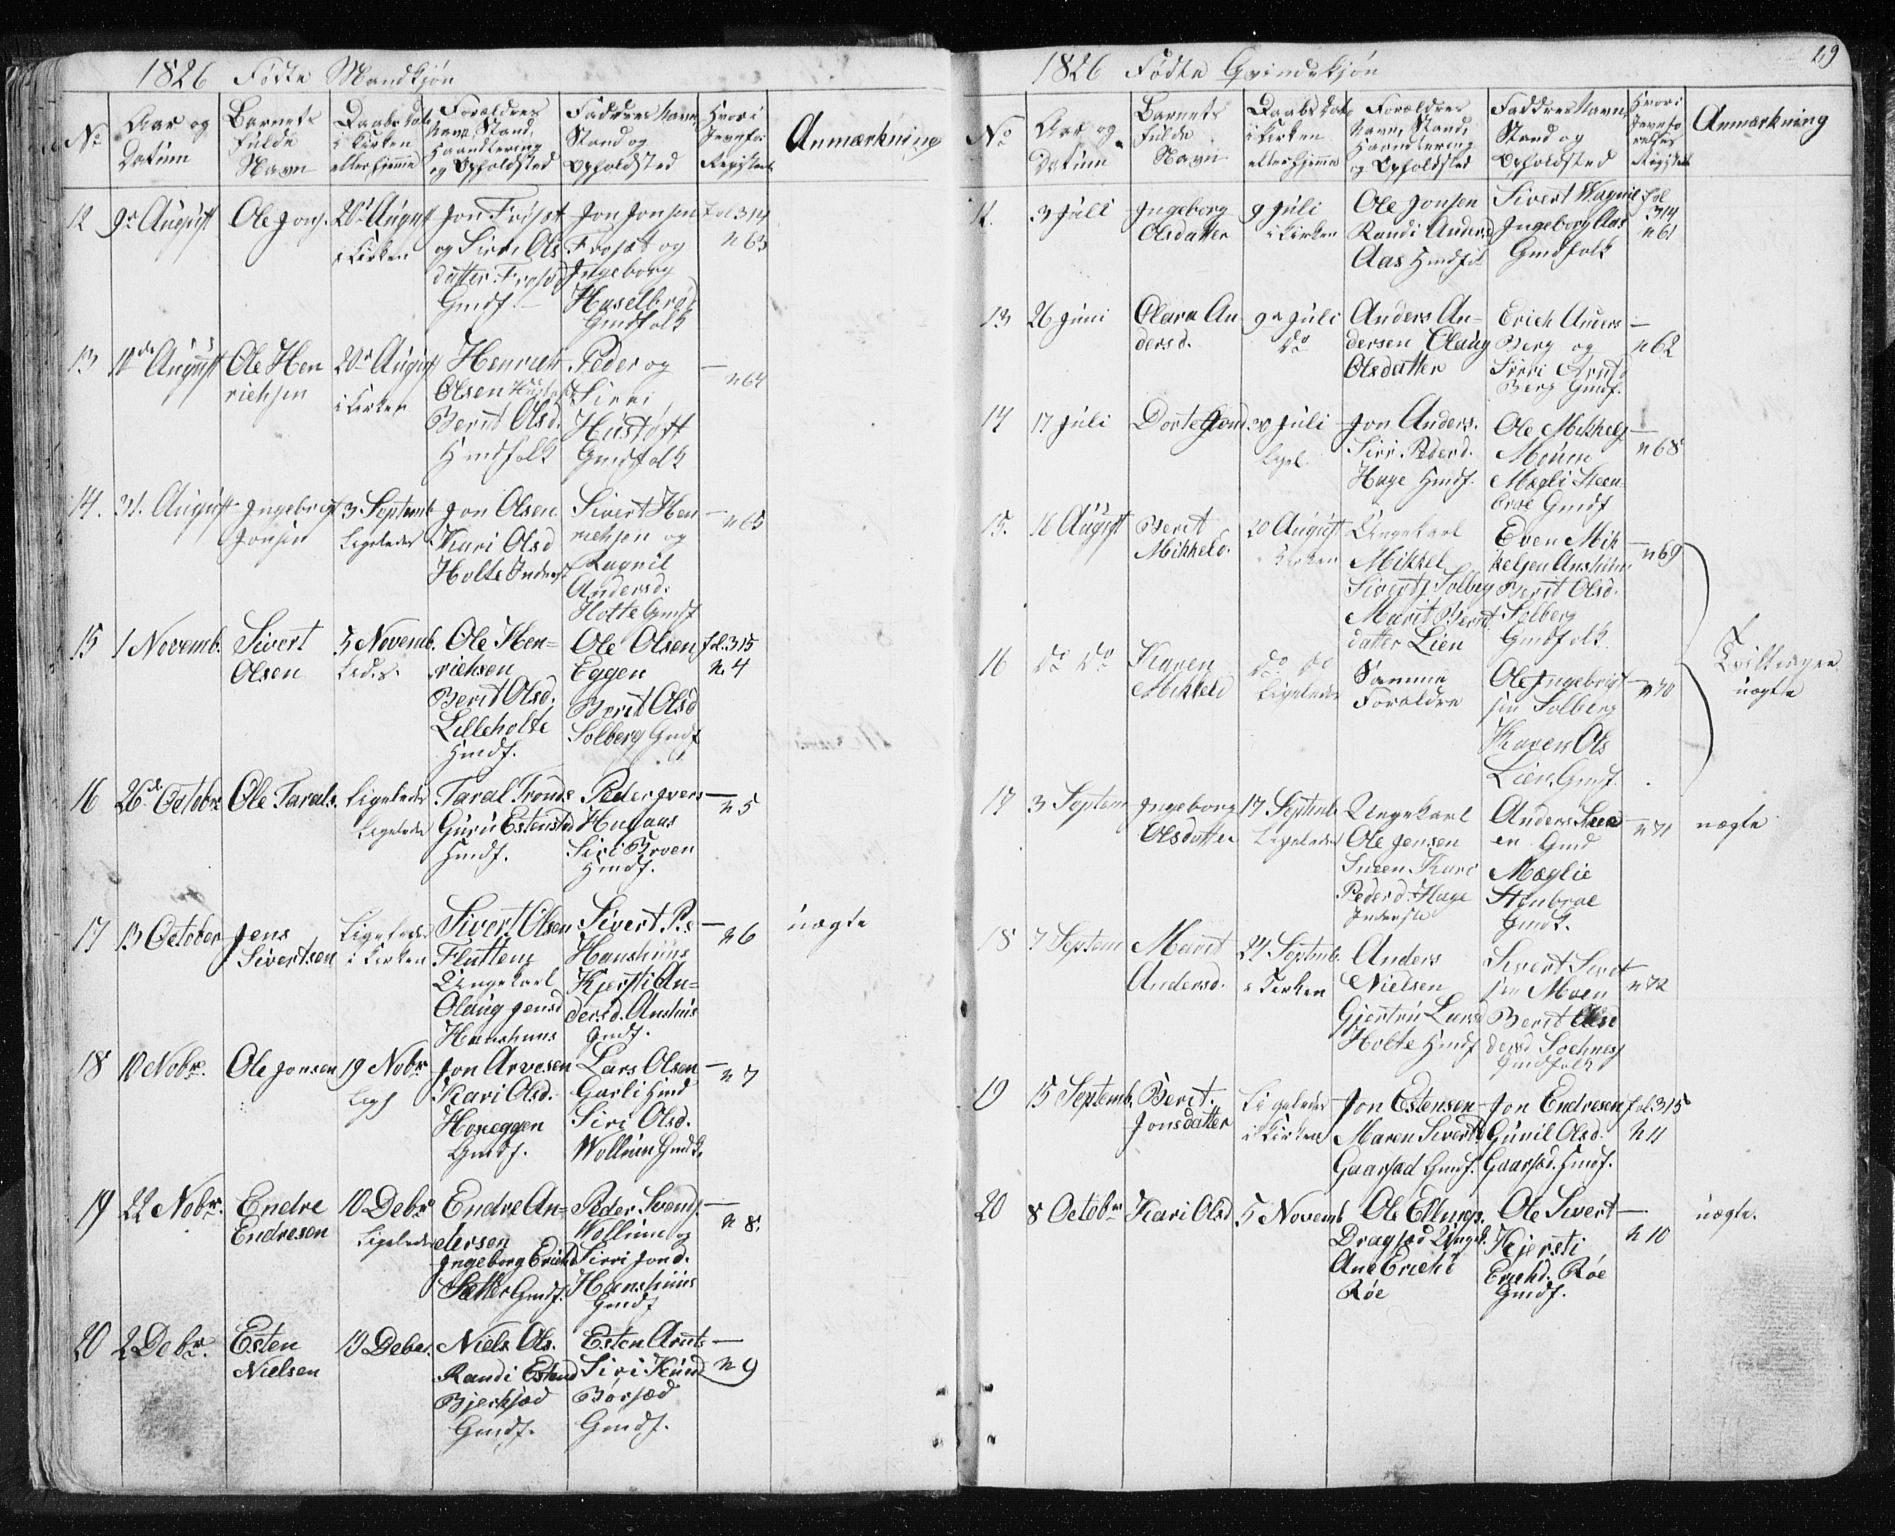 1826 Födte Mandkjön
No
Aar og
Datum
Barnets
fulde
Navn
Daabs Dato
i Kirken
eller hjemme
Forældres
Navn, Stand,
Haandtering
og Opholdsted
Faddres Navn,
Stand og
Opholdsted
Hvor i
Jevnför
Registeret
Anmærkning
12 9de August Ole Jons. 20de August
i Kirken
Jon Frösæt
og Sirri Ols
datter Frosæt
Gmdf.
Jon Jonsen
Frosæt og
Ingeborg
Haselbröe
Gmdfolk
fol 314
n 63
13 10de August Ole Hen
richsen
20de August
i Kirken
Henrich
Olsen
Berit Olsd.
Hmdfolk
Peder og
Sirri
Hustöft
Gmdfolk
— n 64
14. 31. August Ingebrigt
Jonsen
3 Septemb
Ligeledes
Jon Olsen
Kari Olsd
Holte Inderst
Sivert Hen
richsen og
Ragnil
Andersd.
Holte Gmdf
— n 65
15 1 Novemb. Sivert
Olsen
5 Novemb.
Ole Hen=
richsen
Berit Olsd.
Lilleholte
Hmdf.
Ole Olsen
Eggen
Berit Olsd
Solberg Gmdf
fol. 315
n. 4
16 26de Octobr Ole Tarals. Ligeledes
Ligeledes
Taral Tronds
Guru Estensted
Hmdf.
Peder Ivers
Husaas
Siri Broen
Hmdf.
— n 5
17 13 October Jens
Sivertsen
Ligeledes
i Kirken
Sivert Olsen
Fluttem
Ungekarl
Olaug Jensd
Hanshuus
Sivert P.s
Hanshuus
Kjersti An=
dersd. Anshus
Gmdf.
— n 6
uægte
18 10 Nobr. Ole Jonsen 19 Nobr
Jon Arvesen
Kari Olsd.
Honeggen
Gmdf.
Lars Olsen
Garli Hmd
Siri Olsd.
Wollum Gmdk.
— n 7
19 22 Nobr. Endre
Endresen
10 Debr
Ligeledes
Endre An=
dersen
Ingeborg Erichd
Sætter Gmdf.
Peder Svends.
Wollum og
Sirri Jond.
Hanshuus
Gmdf
— n 8.
20 2 Debr. Esten
Nielsen
10 Debr.
Niels Ols.
Randi Estend
Bjerksæd
Gmdf.
Esten Arnts
Siri Knud
Börsæd
Gmdf.
— n 9
29
1826 Födte Qvindekjön
No
Aar og
Datum
Barnets
fulde
Navn
Daabs Dato
i Kirken
eller hjemme
Forældres
Navn, Stand,
Haandtering
og Opholdsted
Faddres Navn,
Stand og
Opholdsted
Hvor i
Jevnfö
relses
Registeret
Anmærkning
12. 3 Juli Ingeborg
Olsdatter
9 Juli
i Kirken
Ole Jonsen
Randi Andersd
Aas Hmdfolk
Sivert
Ingeborg Aas
Gmdfolk
fol
314
n 61
13 26 Juni Olava An
dersd.
9de Juli
do
Anders An-
dersen Olaug
Olsdatter
Erich
Berg og
Sirri Arntsd
Berg Gmdf.
— n 62
14 17 Juli Dorte Jonsd Juli
Ligel.
Jon Anders.
Siri Pederd.
Hage Hmdf.
Ole Mikkels
Moum
Magli Steen
broe Gmdf
— n 68
15. 16 August Berit
Mikkelsd.
20 August
i Kirken
Ungekarl
Mikkel
Siverts Solberg
Marit Bernt
datter Lien
Even Mik
kelsen Anshuus
Berit Olsd.
Solberg
Gmdfolk
— n 69
16 do do Karen
Mikkelsd
do do
Ligeledes
Samme
Forældre
Ole Ingebrigt
sen Solberg
Karen Ols
Lien Gmdf.
— n 70
Tvillinger
uægte
17 3 Septem Ingeborg
Olsdatter
17 Septemb.
Ligeledes
Ungekarl
Ole Jensen
Sneen Kari
Pederd. Hage
Inderste
Anders Snee
en Gmd
Maglie
Stenbroe
Gmdk.
— n 71
uægte
18 7 Septem Marit
Andersd.
24 Septemb.
i Kirken
Anders
Nielsen
Gjertru Larsd
Holte Hmdf
Sivert Sivert
sen Moen
Berit
dersd Sochness
Gmdfolk
— n 72
19 15 Septemb. Berit.
Jonsdatter
Ligeledes
i Kirken
Jon Estensen
Maren Sivertsd
Gaarsæd Gmdf.
Jon Endresen
Gunil Olsd.
Gaarsæd. Hmdf.
fol. 315
n 11
20 8 Octobr Kari Olsd 5 Novemb
Ole Ellings.
Dragsæd Ungk.
Ane Erichd
Röe
Ole Sivert
Kjersti
Erichd. Röe
Gmdf.
— n 10
uægte.